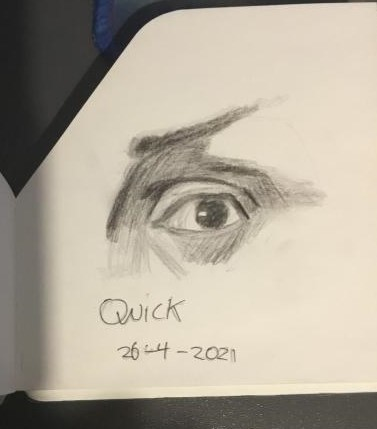 Quick
26-4-2021